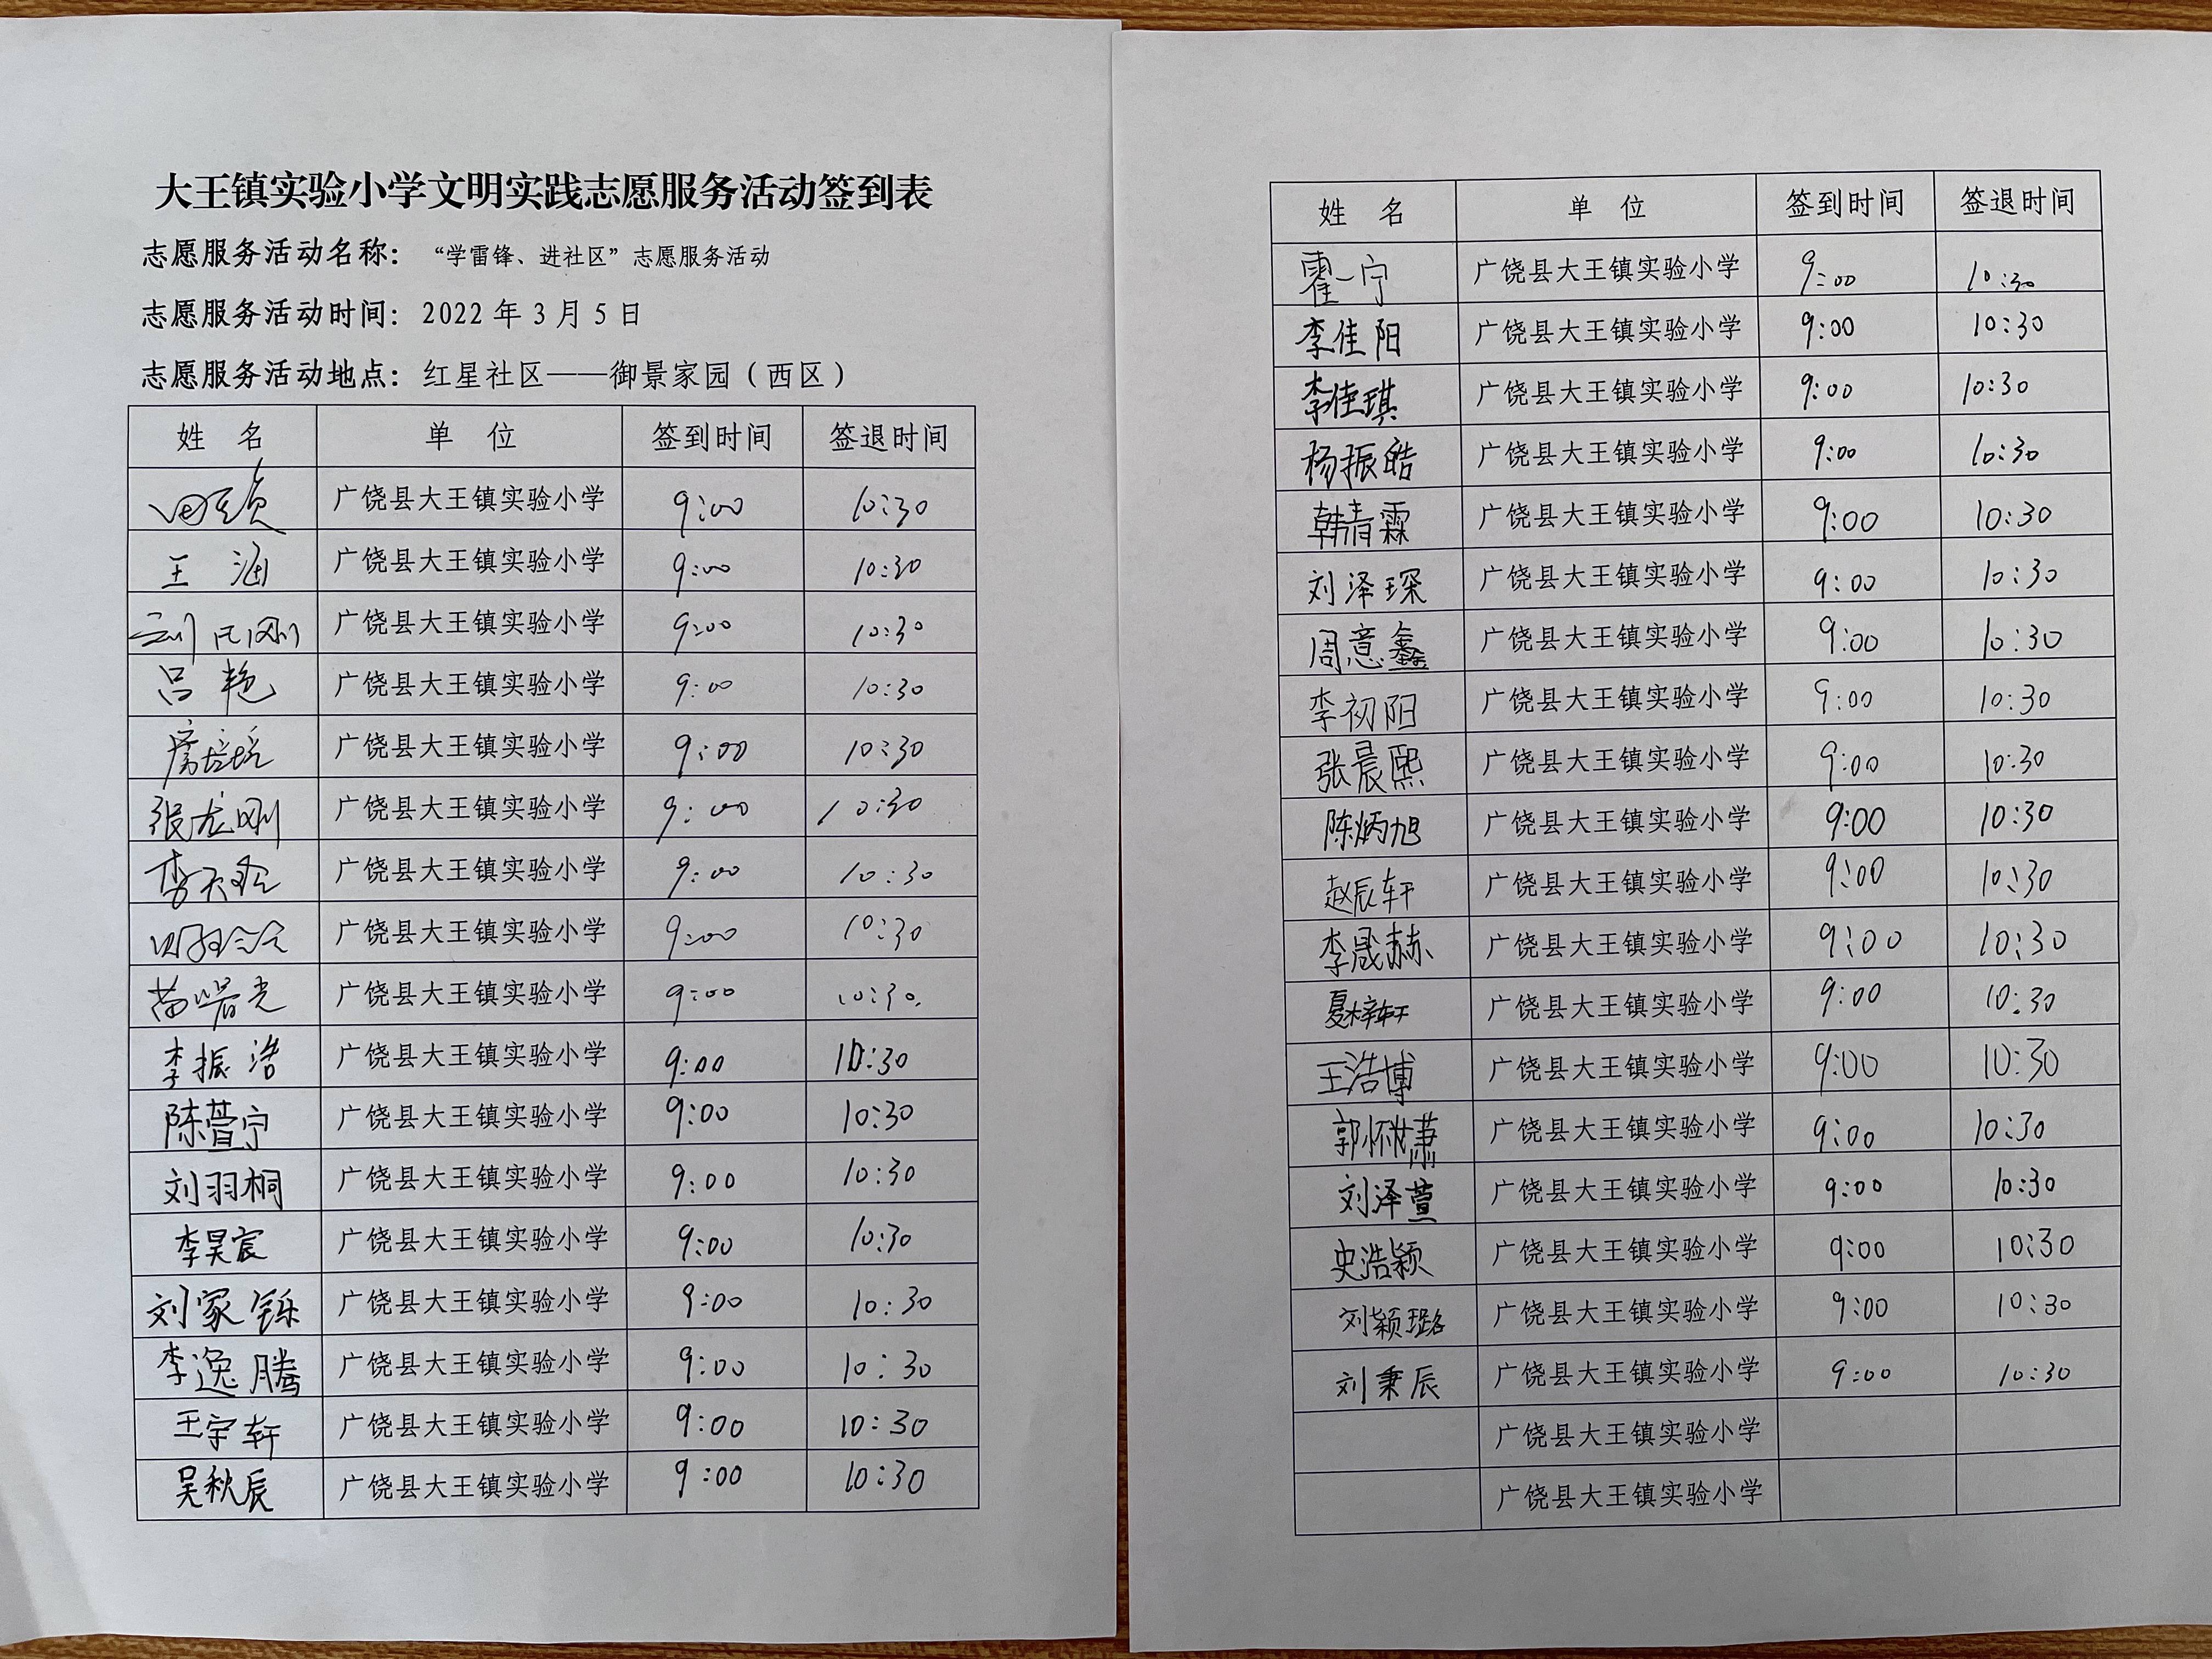 大王镇实验小学文明实践志愿服务活动签到表
志愿服务活动名称：“学雷锋、进社区”志愿服务活动
志愿服务活动时间：2022 年 3 月 5 日
志愿服务活动地点：红星社区——御景家园（西区）
姓 名 单 位 签到时间 签退时间
广饶县大王镇实验小学 9:00 10:30
王 涵 广饶县大王镇实验小学 9:00 10:30
广饶县大王镇实验小学 9:00 10:30
吕 艳 广饶县大王镇实验小学 9:00 10:30
广饶县大王镇实验小学 9:00 10:30
张龙刚 广饶县大王镇实验小学 9:00 10:30
广饶县大王镇实验小学 9:00 10:30
广饶县大王镇实验小学 9:00 10:30
广饶县大王镇实验小学 9:00 10:30
李振浩 广饶县大王镇实验小学 9:00 10:30
陈萱宁 广饶县大王镇实验小学 9:00 10:30
刘羽桐 广饶县大王镇实验小学 9:00 10:30
李昊宸 广饶县大王镇实验小学 9:00 10:30
刘家铄 广饶县大王镇实验小学 9:00 10:30
李逸腾 广饶县大王镇实验小学 9:00 10:30
王宇轩 广饶县大王镇实验小学 9:00 10:30
吴秋辰 广饶县大王镇实验小学 9:00 10:30
姓 名 单 位 签到时间 签退时间
霍一宁 广饶县大王镇实验小学 9:00 10:30
李佳阳 广饶县大王镇实验小学 9:00 10:30
李佳琪 广饶县大王镇实验小学 9:00 10:30
杨振皓 广饶县大王镇实验小学 9:00 10:30
韩青霖 广饶县大王镇实验小学 9:00 10:30
刘泽琛 广饶县大王镇实验小学 9:00 10:30
周意鑫 广饶县大王镇实验小学 9:00 10:30
李初阳 广饶县大王镇实验小学 9:00 10:30
张晨熙 广饶县大王镇实验小学 9:00 10:30
陈炳旭 广饶县大王镇实验小学 9:00 10:30
赵辰轩 广饶县大王镇实验小学 9:00 10:30
李晟赫 广饶县大王镇实验小学 9:00 10:30
夏梓轩 广饶县大王镇实验小学 9:00 10:30
王浩博 广饶县大王镇实验小学 9:00 10:30
广饶县大王镇实验小学 9:00 10:30
刘泽萱 广饶县大王镇实验小学 9:00 10:30
史浩颖 广饶县大王镇实验小学 9:00 10:30
刘颖璐 广饶县大王镇实验小学 9:00 10:30
刘秉辰 广饶县大王镇实验小学 9:00 10:30
广饶县大王镇实验小学
广饶县大王镇实验小学